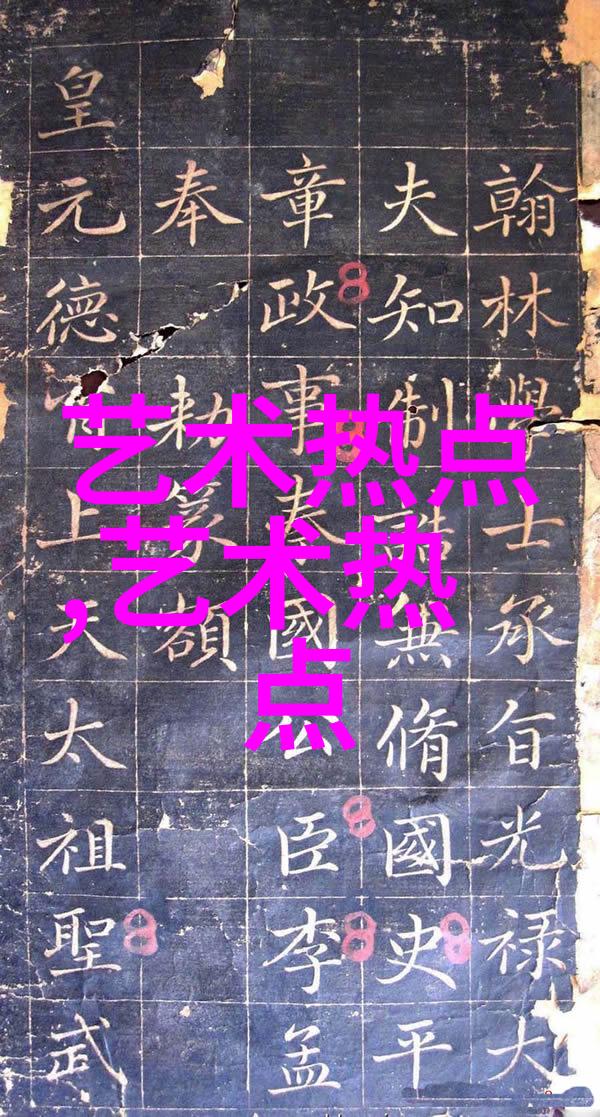 翰林學士承旨光禄大
夫知制誥無脩國史平
章政事秦國公臣李孟
奉勅篆額
皇元德上天太祖聖武
艺术热点
,艺术热
点